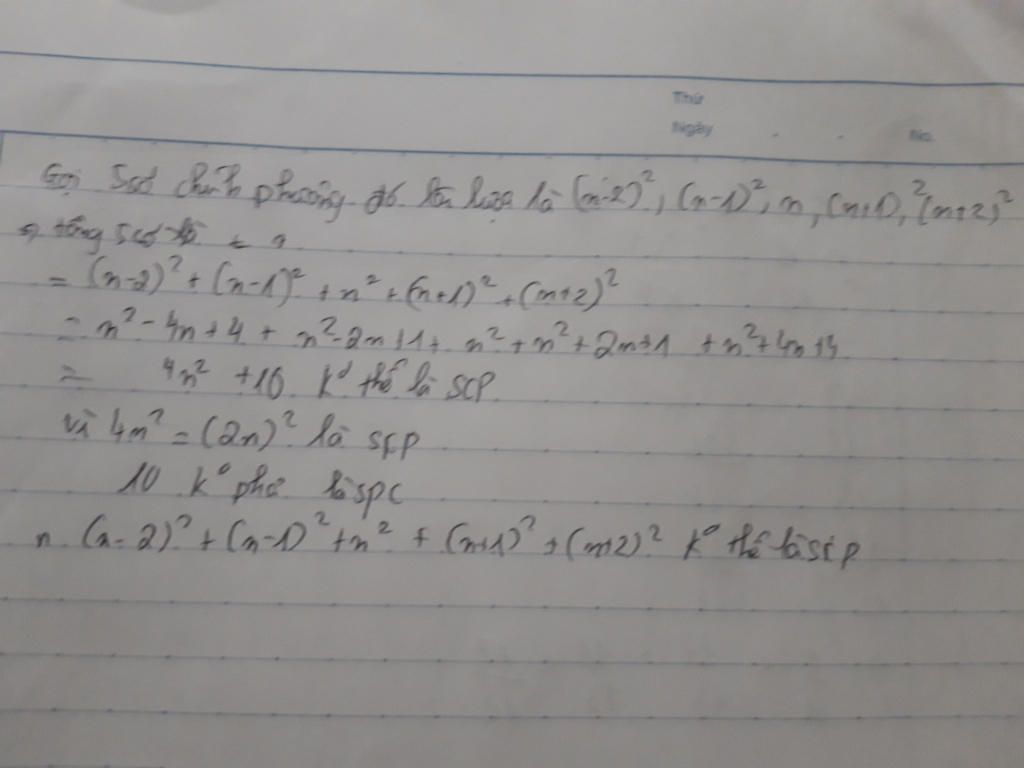 Thứ
Ngày . . No.
Gọi 5 số chính phương đó lần lượt là (n-2)², (n-1)², n, (n+1)², (n+2)²
⇒ tổng 5 số là = 
= (n-2)² + (n-1)² + n² + (n+1)² + (n+2)²
= n² - 4n + 4 + n² - 2n + 1 + n² + n² + 2n + 1 + n² + 4n + 4
= 4n² + 10 k° thể là SCP
vì 4n² = (2n)² là SCP
10 k° phả là SPC
n (n-2)² + (n-1)² + n² + (n+1)² + (n+2)² k° thể là scp